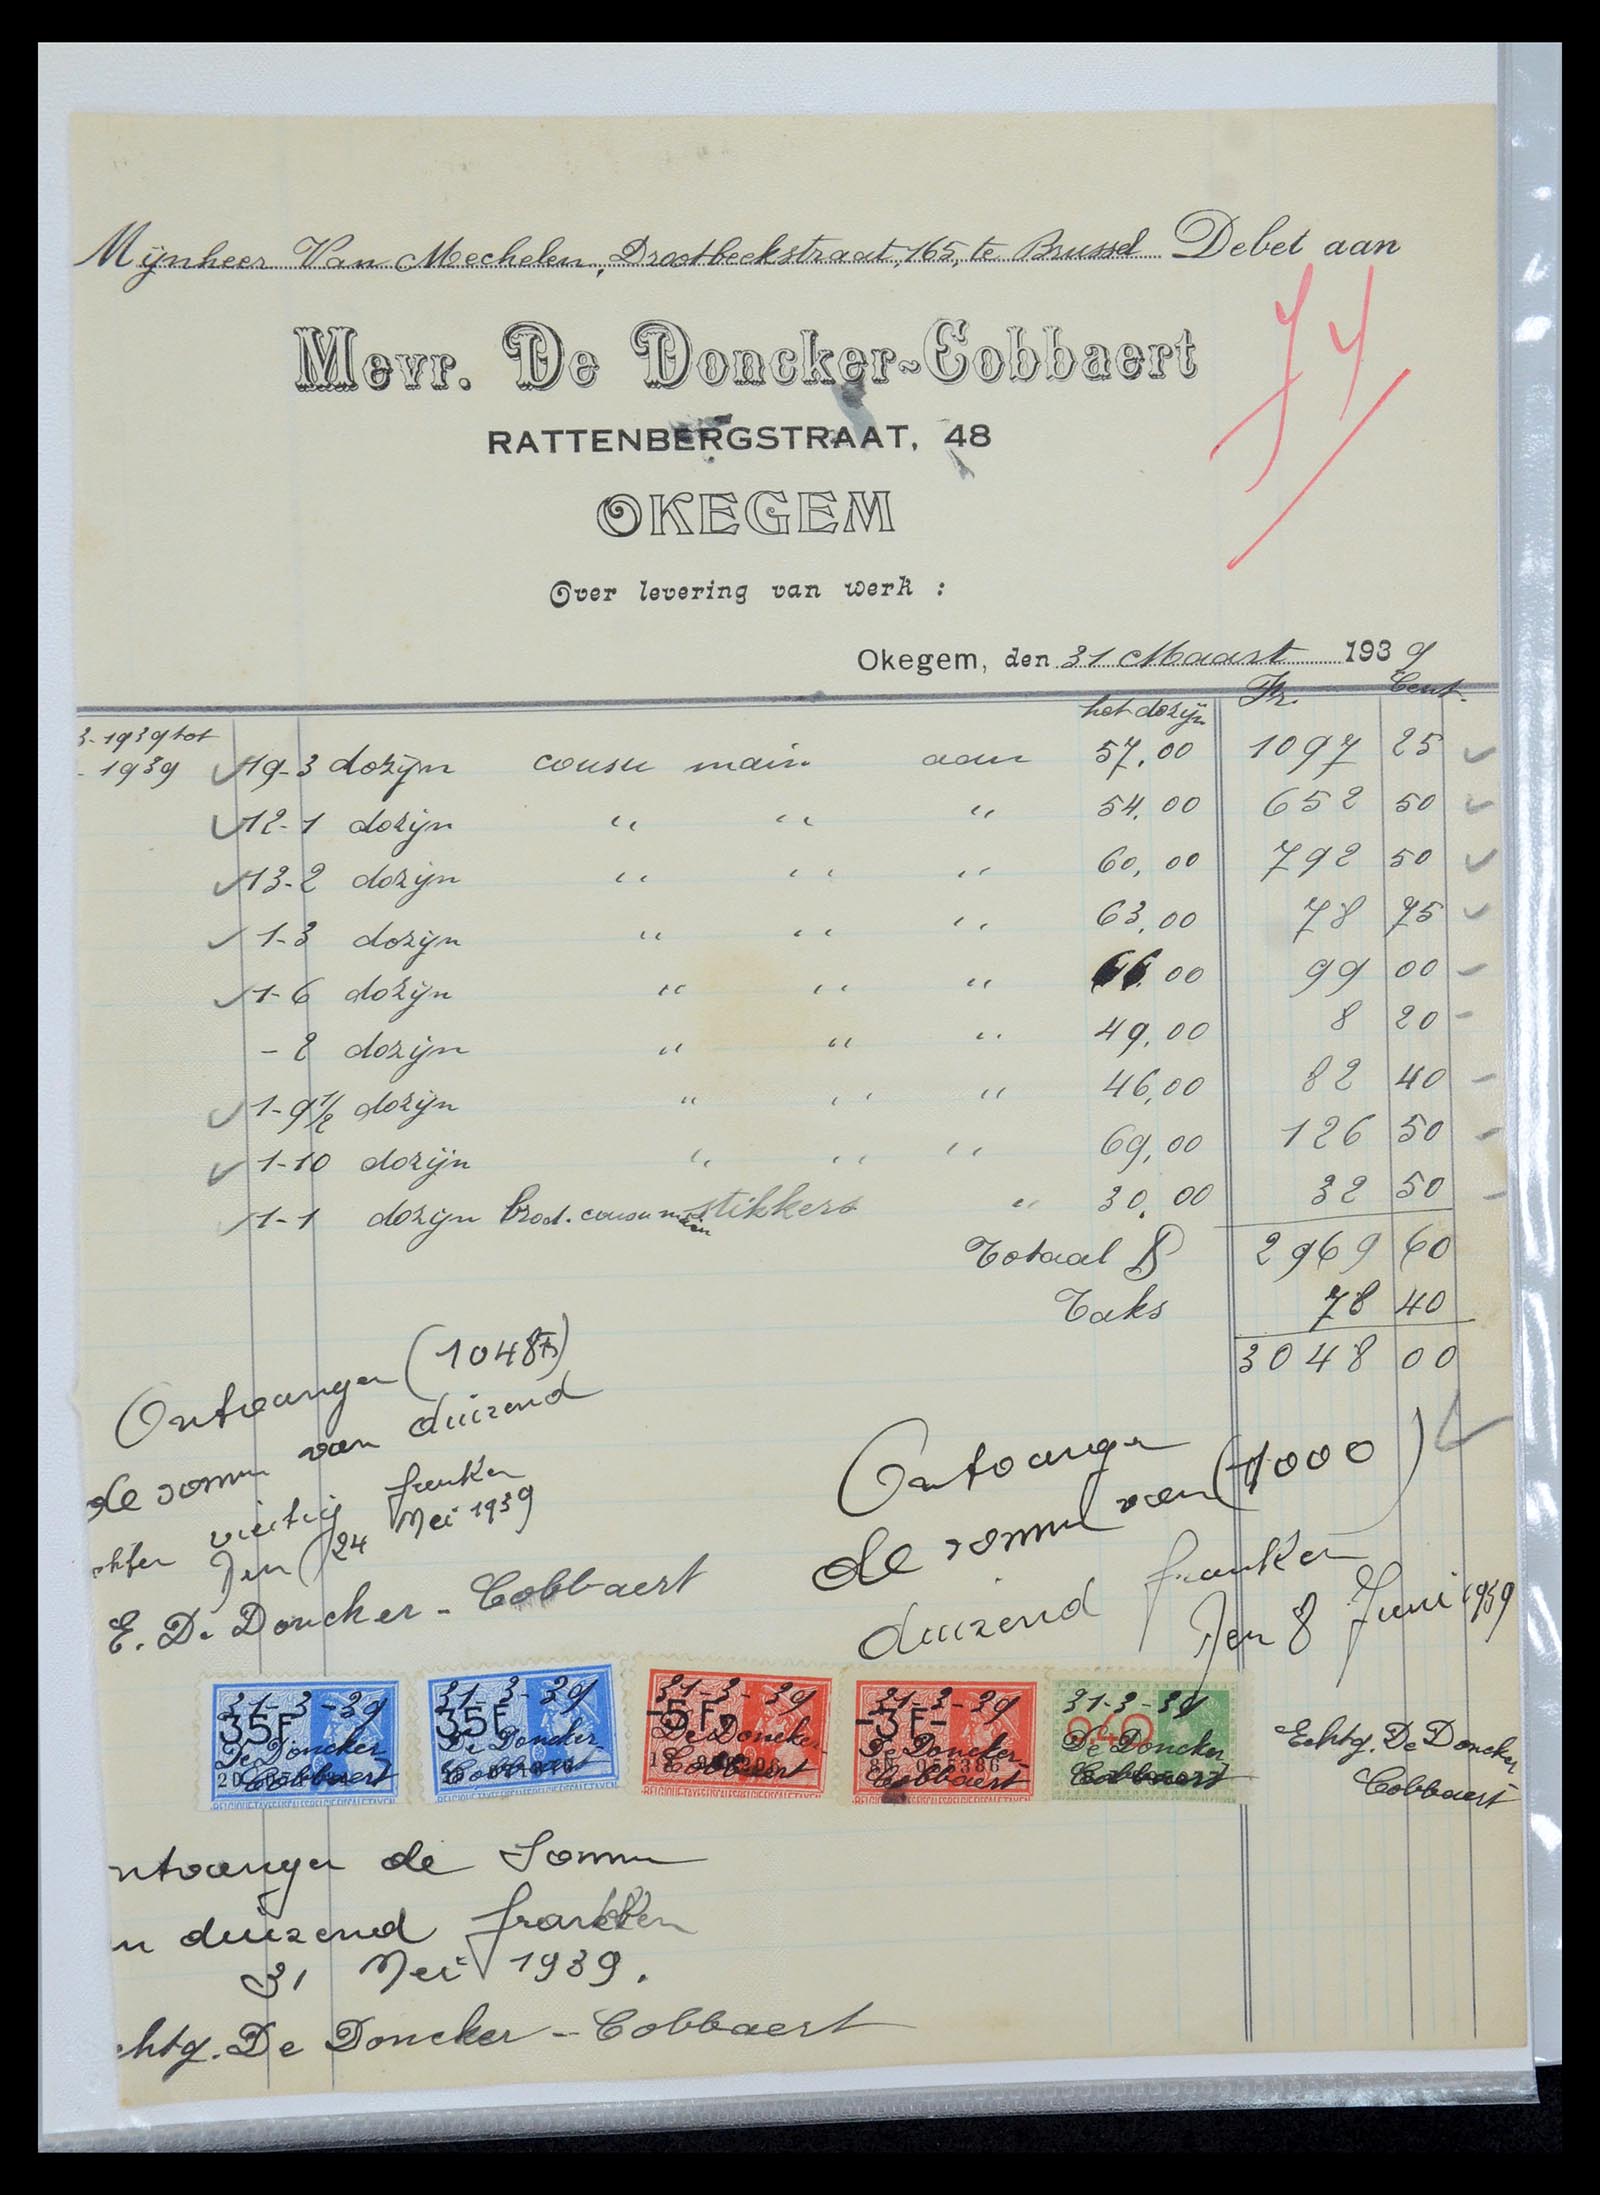 Mijnheer Van Mechelen, Drootbeekstraat, 165, te Brussel Debet aan
Mevr. De Doncker-Cobbaert
RATTENBERGSTRAAT, 48
OKEGEM
Over levering van werk :
Okegem, den 31 Maart 1939
het dozijn Fr. Cent.
3-1939 tot
- 1939 19-3 dozijn cousu main aan 57,00 1097 25
12-1 dozijn " " " 54,00 652 50
13-2 dozijn " " " 60,00 792 50
1-3 dozijn " " " 63,00 78 75
1-6 dozijn " " " 66,00 99 00
-2 dozijn " " " 49,00 8 20
1-9 1/2 dozijn " " " 46,00 82 40
1-10 dozijn " " " 69,00 126 50
1-1 dozijn brod. cousu main stikkers " 30,00 32 50
Totaal 2969 60
Taks 78 40
3048 00
Ontvangen (1048 fr)
de somme van duizend
achten viertig franken
Den 24 Mei 1939
E. De Doncker-Cobbaert
Ontvangen
de somme van (1000)
duizend franken
Den 8 Juni 1939
Echtg. De Doncker
Cobbaert
31-3-39 31-3-39 31-3-39 31-3-39 31-3-39
35F 35F -5F- -3F- 0.40
De Doncker De Doncker De Doncker De Doncker De Doncker
Cobbaert Cobbaert Cobbaert Cobbaert Cobbaert
055386
ntvangen de Somme
n duizend franken
31 Mei 1939.
chtg. De Doncker-Cobbaert